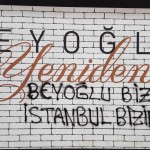 EYOĞL
Yeniden
BEYOĞLU BİZ
İSTANBUL BİZİ